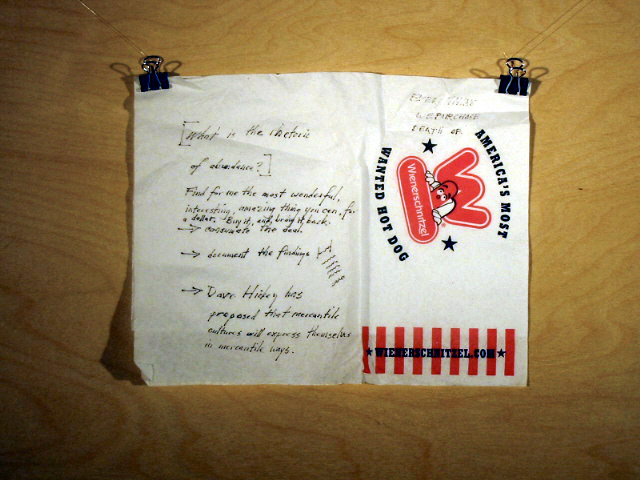 [What is the rhetoric
of abundance?]
Find for me the most wonderful,
interesting, amazing thing you can, for
a dollar. Buy it, and, bring it back.
→ consumate the deal.
→ document the findings
→ Dave Hickey has
proposed that mercantile
cultures will express themselves
in mercantile ways.
DEATH OF
AMERICA'S MOST
WANTED HOT DOG
Wienerschnitzel
W
WIENERSCHNITZEL.COM